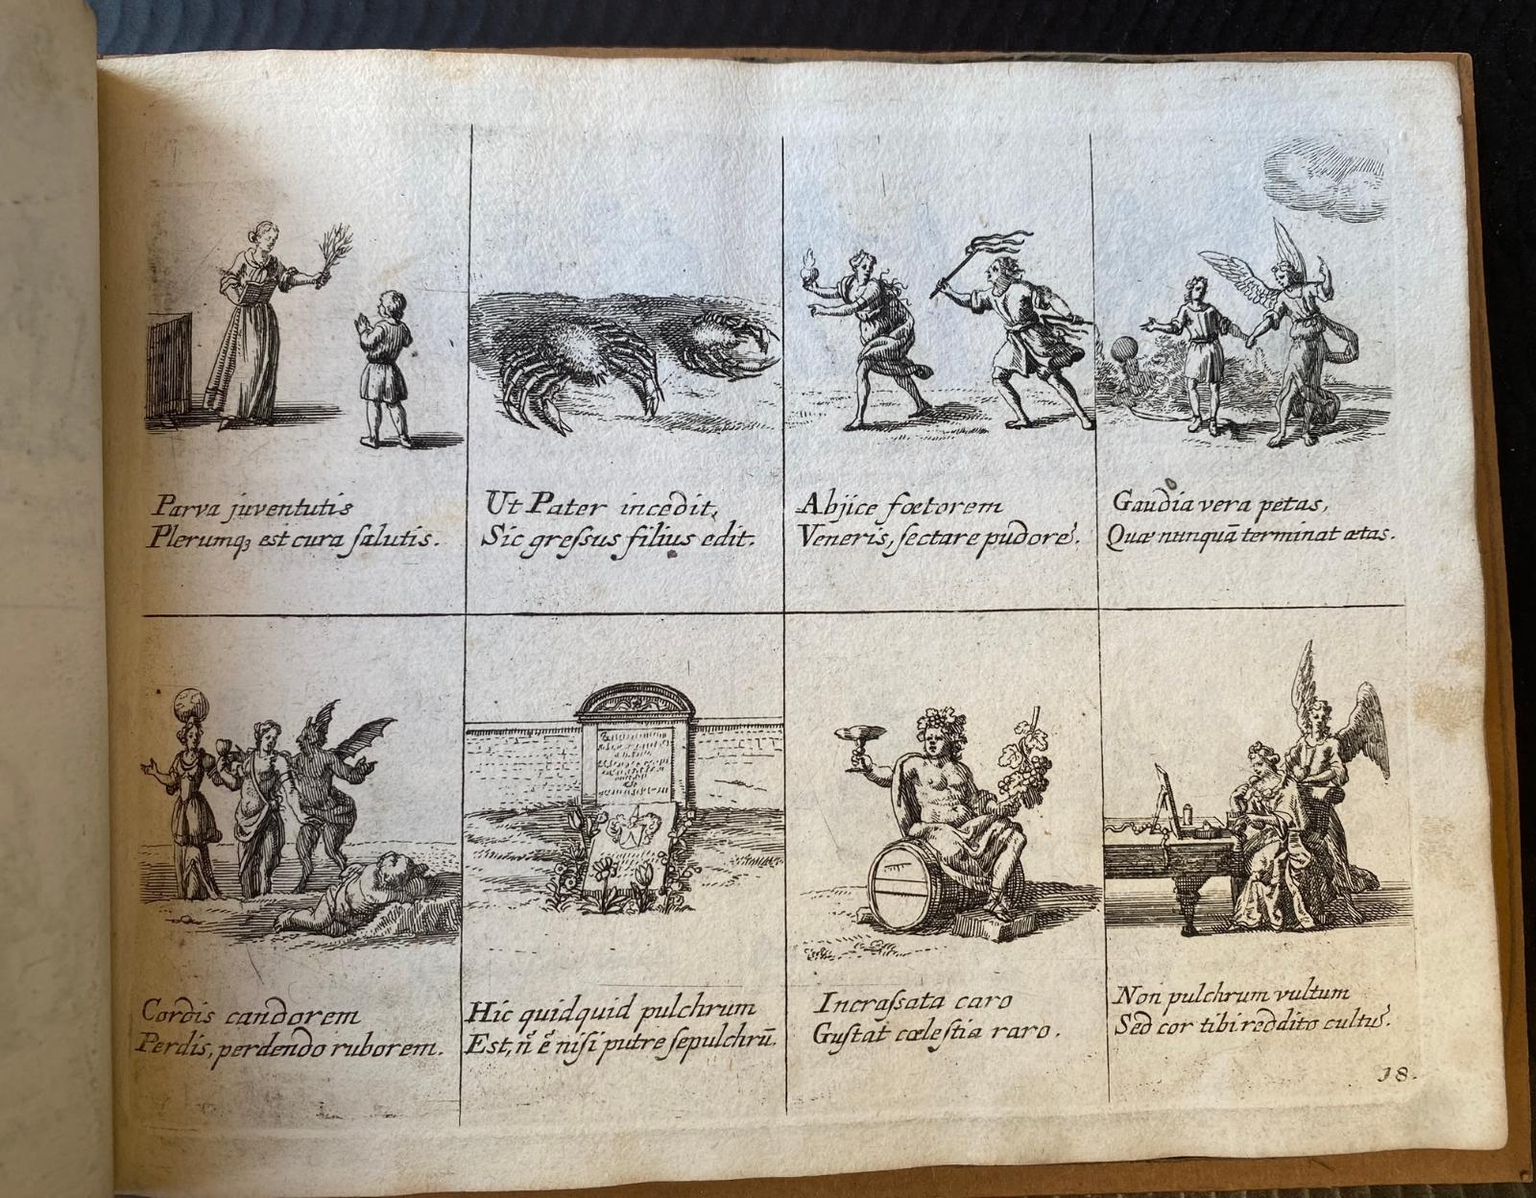 Parva juventutis
Plerumqꝫ est cura ſalutis.
Ut Pater incedit,
Sic greſsus filius edit.
Abjice fœtorem
Veneris, ſectare pudorē.
Gaudia vera petas,
Quæ nunquā terminat ætas.
Cordis candorem
Perdis, perdendo ruborem.
Hic quidquid pulchrum
Est, n̄ ē niſi putre ſepulchrū.
Incraſsata caro
Guſtat cœleſtia raro.
Non pulchrum vultum
Sed cor tibi reddito cultū.
18.